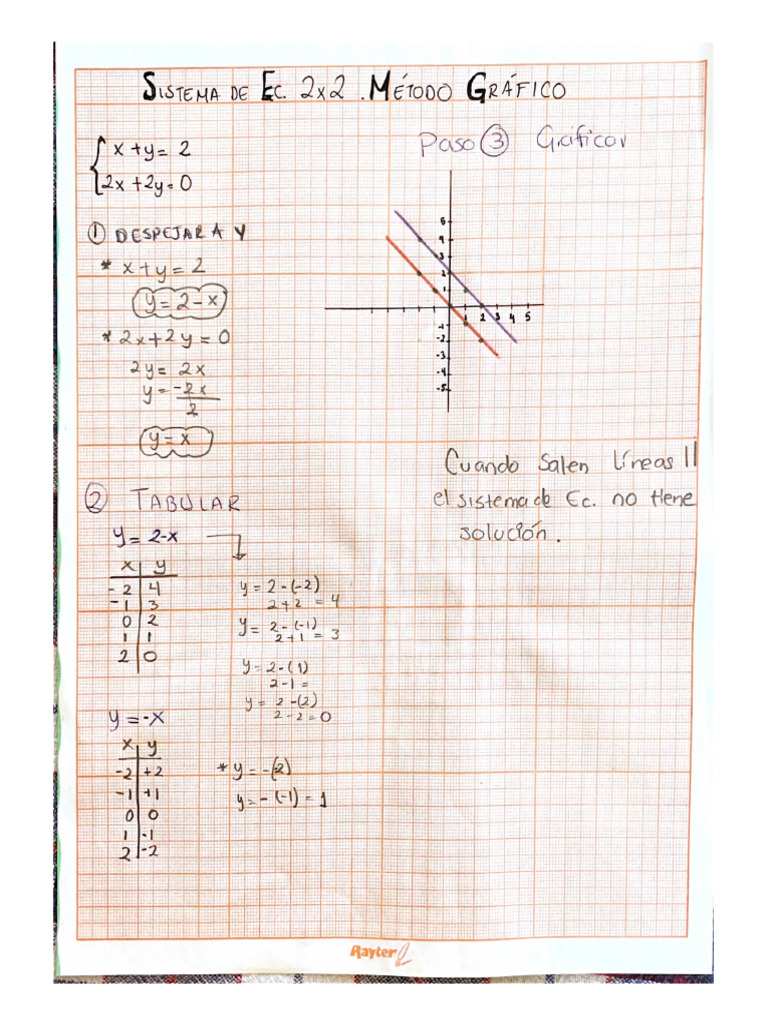 SISTEMA DE EC. 2x2 . MÉTODO GRÁFICO
x + y = 2
2x + 2y = 0
① DESPEJAR A Y
* x + y = 2
y = 2 - x
* 2x + 2y = 0
2y = 2x
y = -2x
2
y = x
② TABULAR
y = 2-x
x y
-2 4
-1 3
0 2
1 1
2 0
y = 2 - (-2)
2 + 2 = 4
y = 2 - (-1)
2 + 1 = 3
y = 2 - (1)
2 - 1 =
y = 2 - (2)
2 - 2 = 0
y = -x
x y
-2 +2
-1 +1
0 0
1 -1
2 -2
* y = -(-2)
y = - (-1) = 1
Paso ③ Graficar
5
4
3
2
1
-1
-2
-3
-4
-5
1 2 3 4 5
Cuando salen líneas ||
el sistema de Ec. no tiene
solución.
Rayter